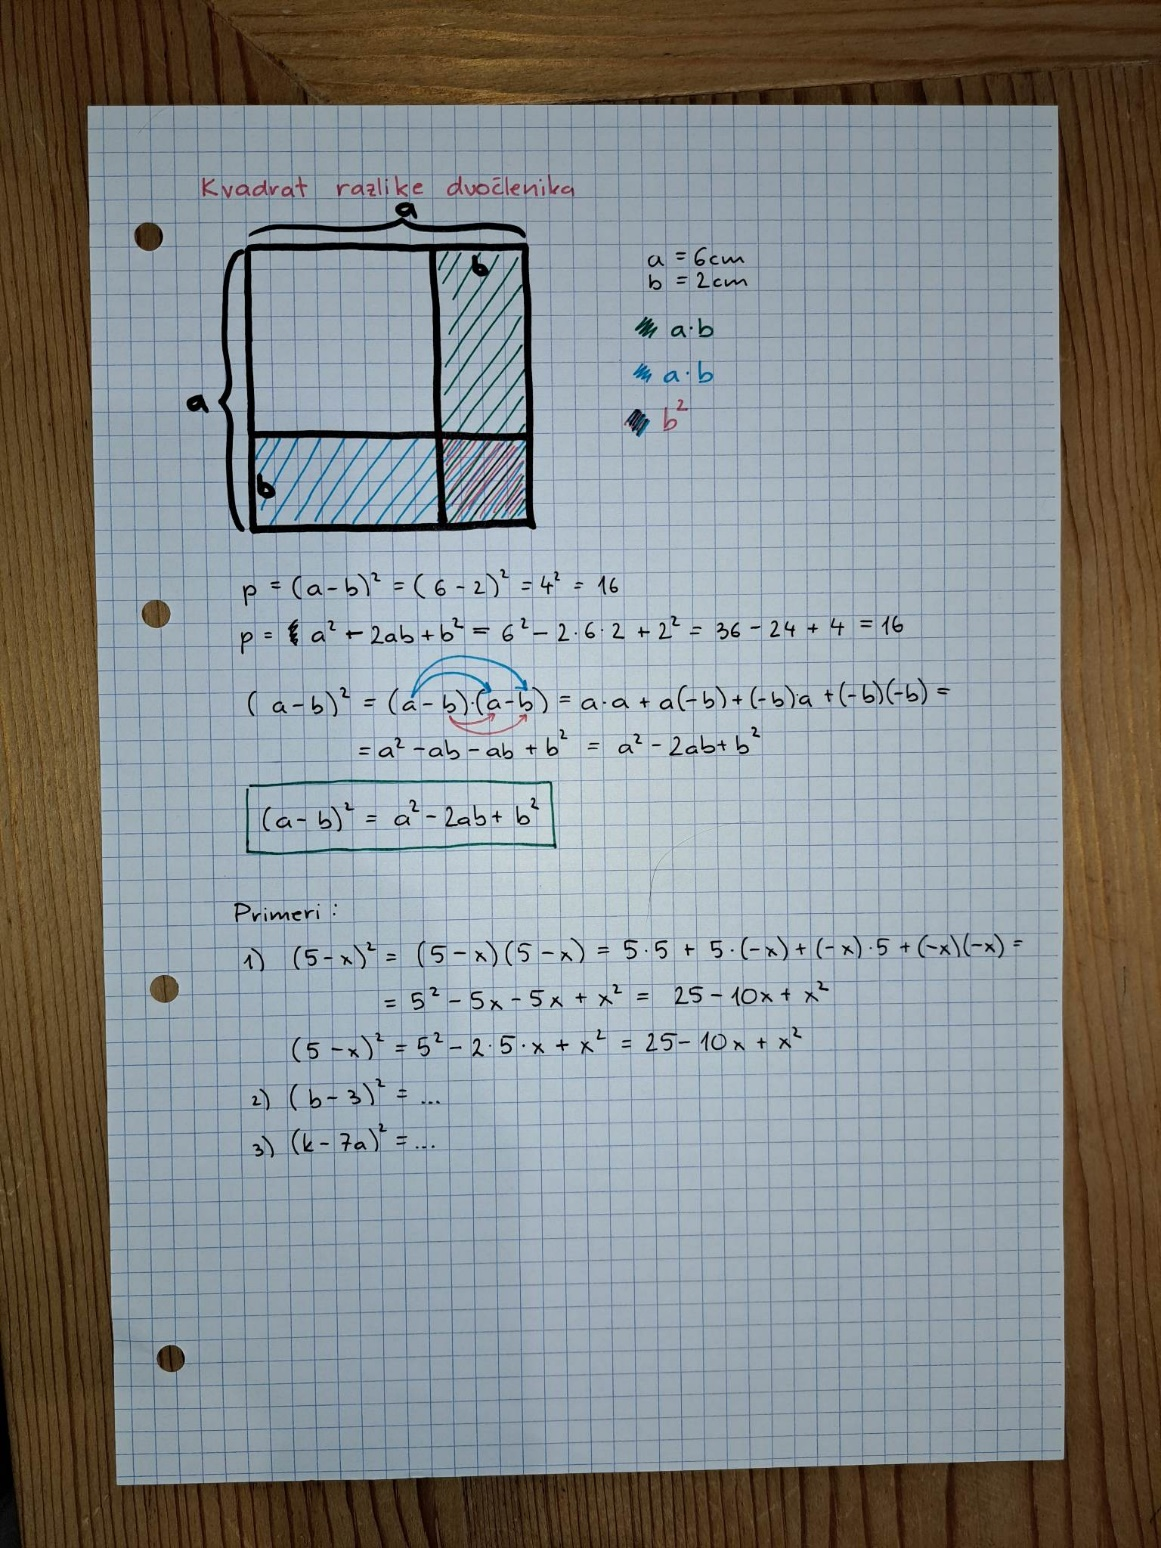 Kvadrat razlike dvočlenika
a
b
a
b
a = 6cm
b = 2cm
a·b
a·b
b²
p = (a-b)² = (6-2)² = 4² = 16
p = a² - 2ab + b² = 6² - 2·6·2 + 2² = 36 - 24 + 4 = 16
(a-b)² = (a-b)·(a-b) = a·a + a(-b) + (-b)·a + (-b)(-b) =
= a² - ab - ab + b² = a² - 2ab + b²
(a-b)² = a² - 2ab + b²
Primeri:
1) (5-x)² = (5-x)(5-x) = 5·5 + 5·(-x) + (-x)·5 + (-x)(-x) =
= 5² - 5x - 5x + x² = 25 - 10x + x²
(5-x)² = 5² - 2·5·x + x² = 25 - 10x + x²
2) (b-3)² = ...
3) (k-7a)² = ...